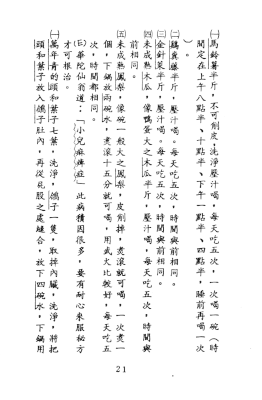 ㈠馬鈴薯半斤，不可削皮，洗淨壓汁喝，每天吃五次，一次喝一碗（時
間定在上午八點半、十點半、下午一點半、四點半，睡前再喝一次
）。
㈡鷄直藤半斤，壓汁喝。每天吃五次，時間與前相同。
㈢金針菜半斤，壓汁喝。每天吃五次，時間與前相同。
㈣未成熟木瓜，像鴨蛋大之木瓜半斤，壓汁喝，每天吃五次，時間與
前相同。
㈤未成熟鳳梨，像碗一般大之鳳梨，皮削掉，煮滾就可喝，一次煮一
個，下鍋放兩碗水，煮滾十五分就可喝，用武火比較好，每天吃五
次，時間都相同。
㈢華陀仙翁道：「小兒痲痺症」此病積因很多，要有耐心來服秘方
才可根治。
㈠萬年青的頭和葉子七葉，洗淨，鴿子一隻，取掉內臟，洗淨，將把
頭和葉子放入鴿子肚內，再從屁股之處縫合，放下四碗水，下鍋用
21